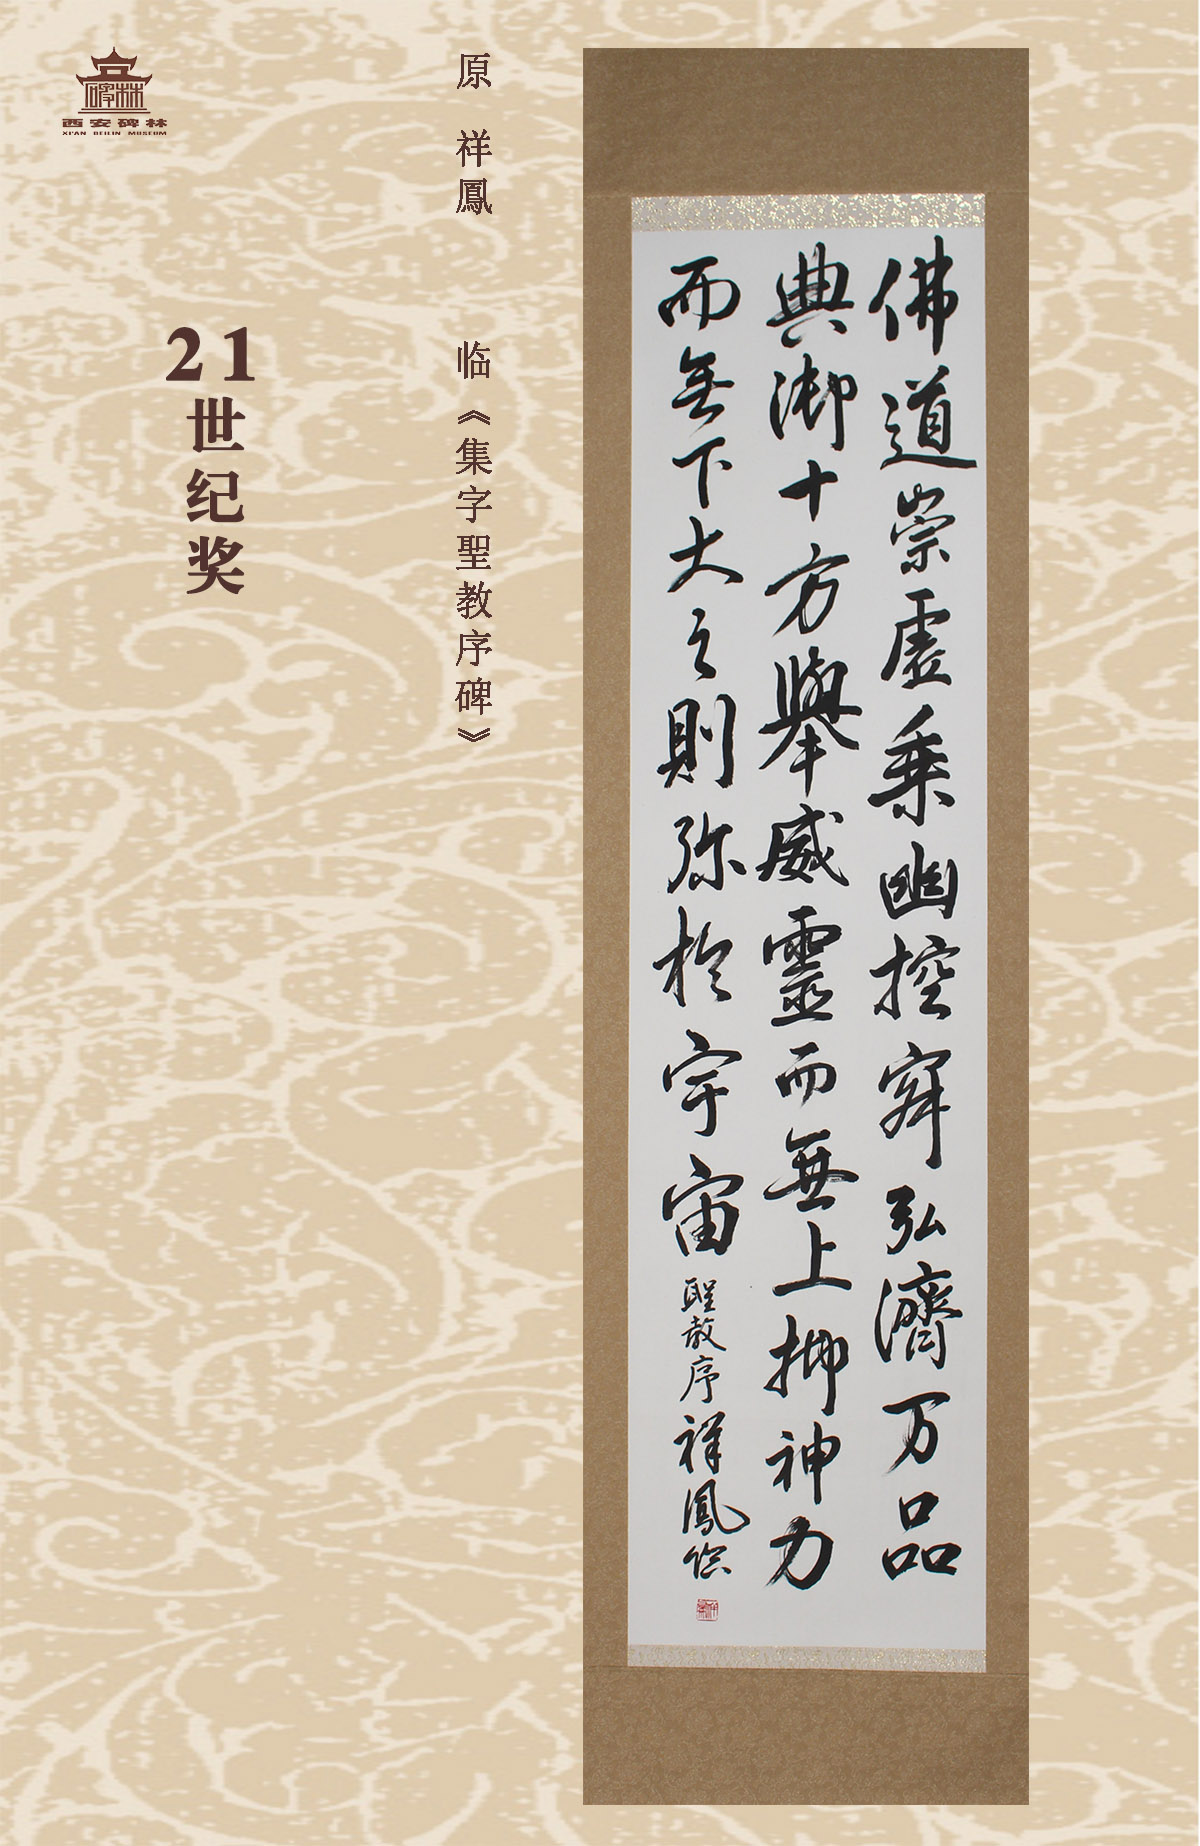 西安碑林
XI'AN BEILIN MUSEUM
21世纪奖
原 祥鳳 临《集字聖教序碑》
佛道崇虚乘幽控寂弘濟万品
典御十方舉威靈而無上抑神力
而無下大之則弥於宇宙
聖教序祥鳳临